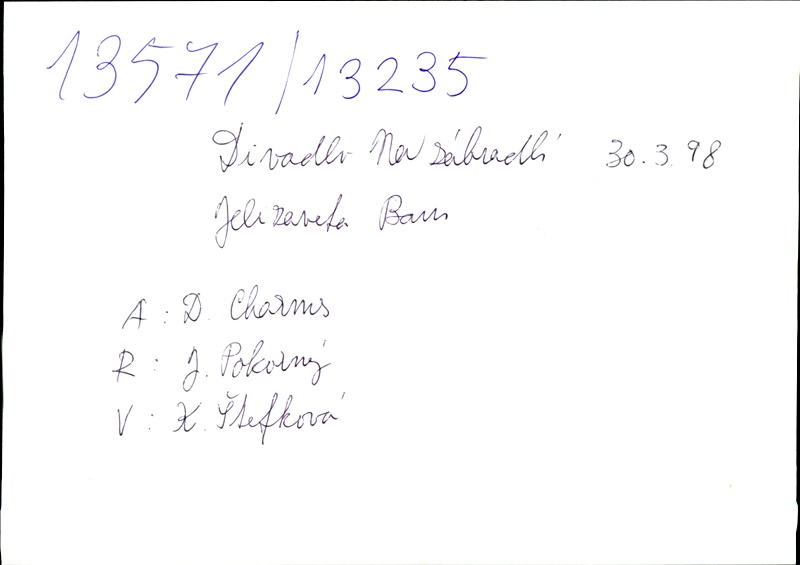 13571/13235
Divadlo Na zábradlí 30.3.98
Jelizaveta Bam
A : D. Charms
R : J. Pokorný
V : K. Štefková